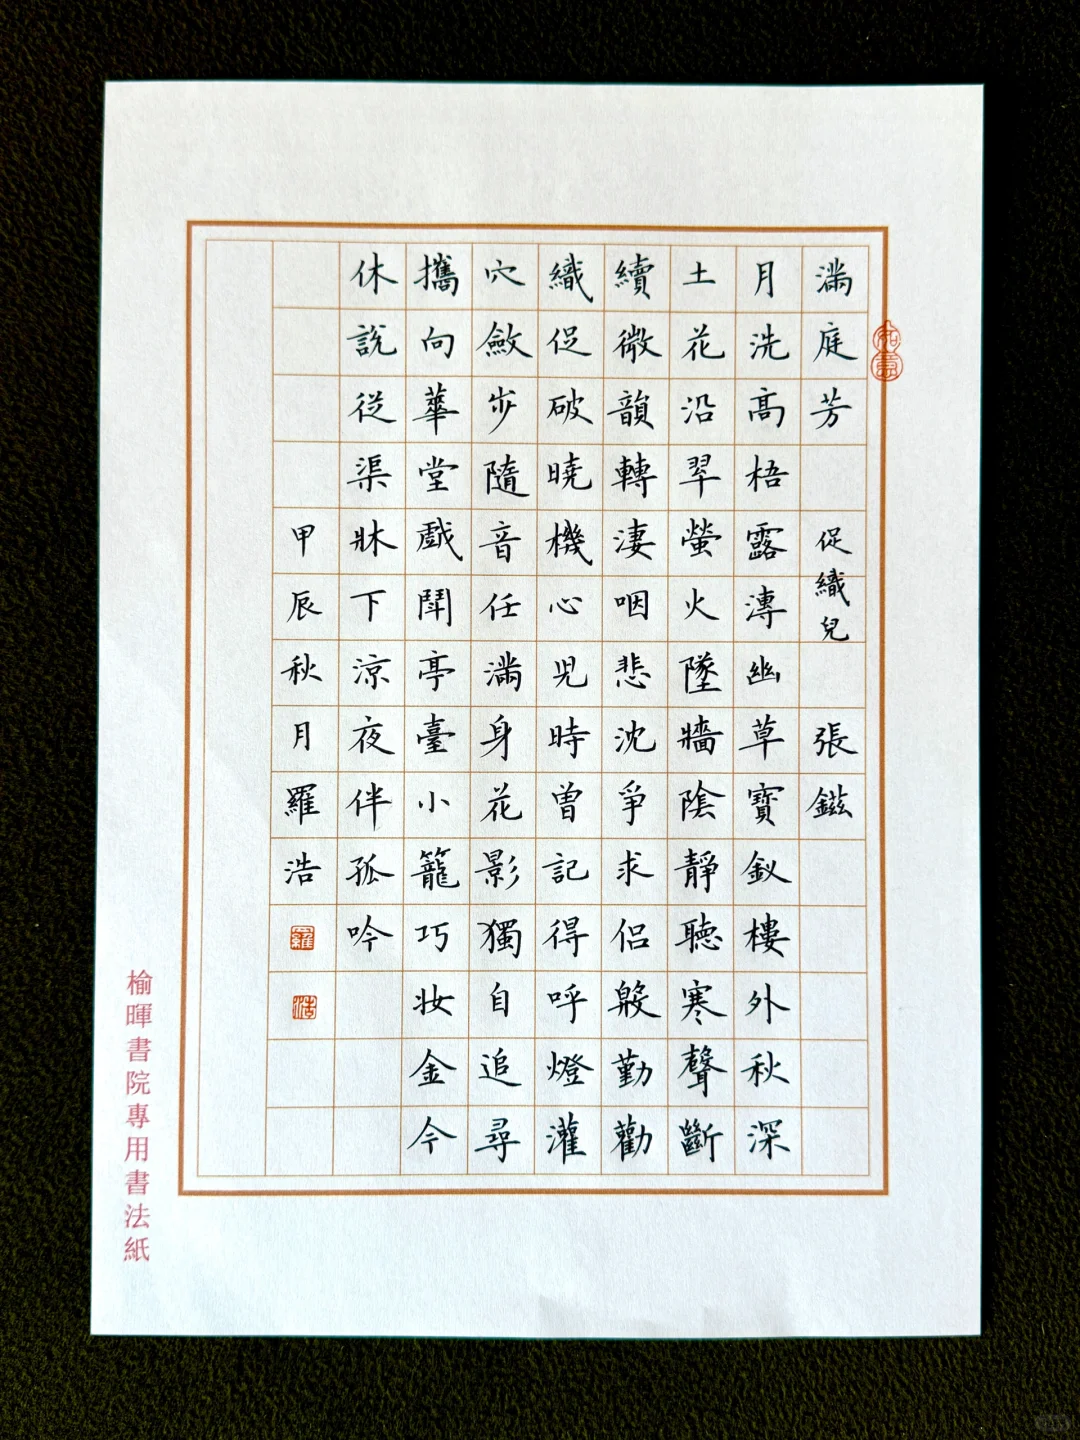 滿庭芳 促織兒 張鎡
月洗高梧露漙幽草寶釵樓外秋深
土花沿翠螢火墜牆陰靜聽寒聲斷
續微韻轉淒咽悲沈爭求侶殷勤勸
織促破曉機心兒時曾記得呼燈灌
穴斂步隨音任滿身花影獨自追尋
攜向華堂戲鬭亭臺小籠巧妝金今
休說從渠牀下涼夜伴孤吟
甲辰秋月羅浩
羅
浩
榆暉書院專用書法紙